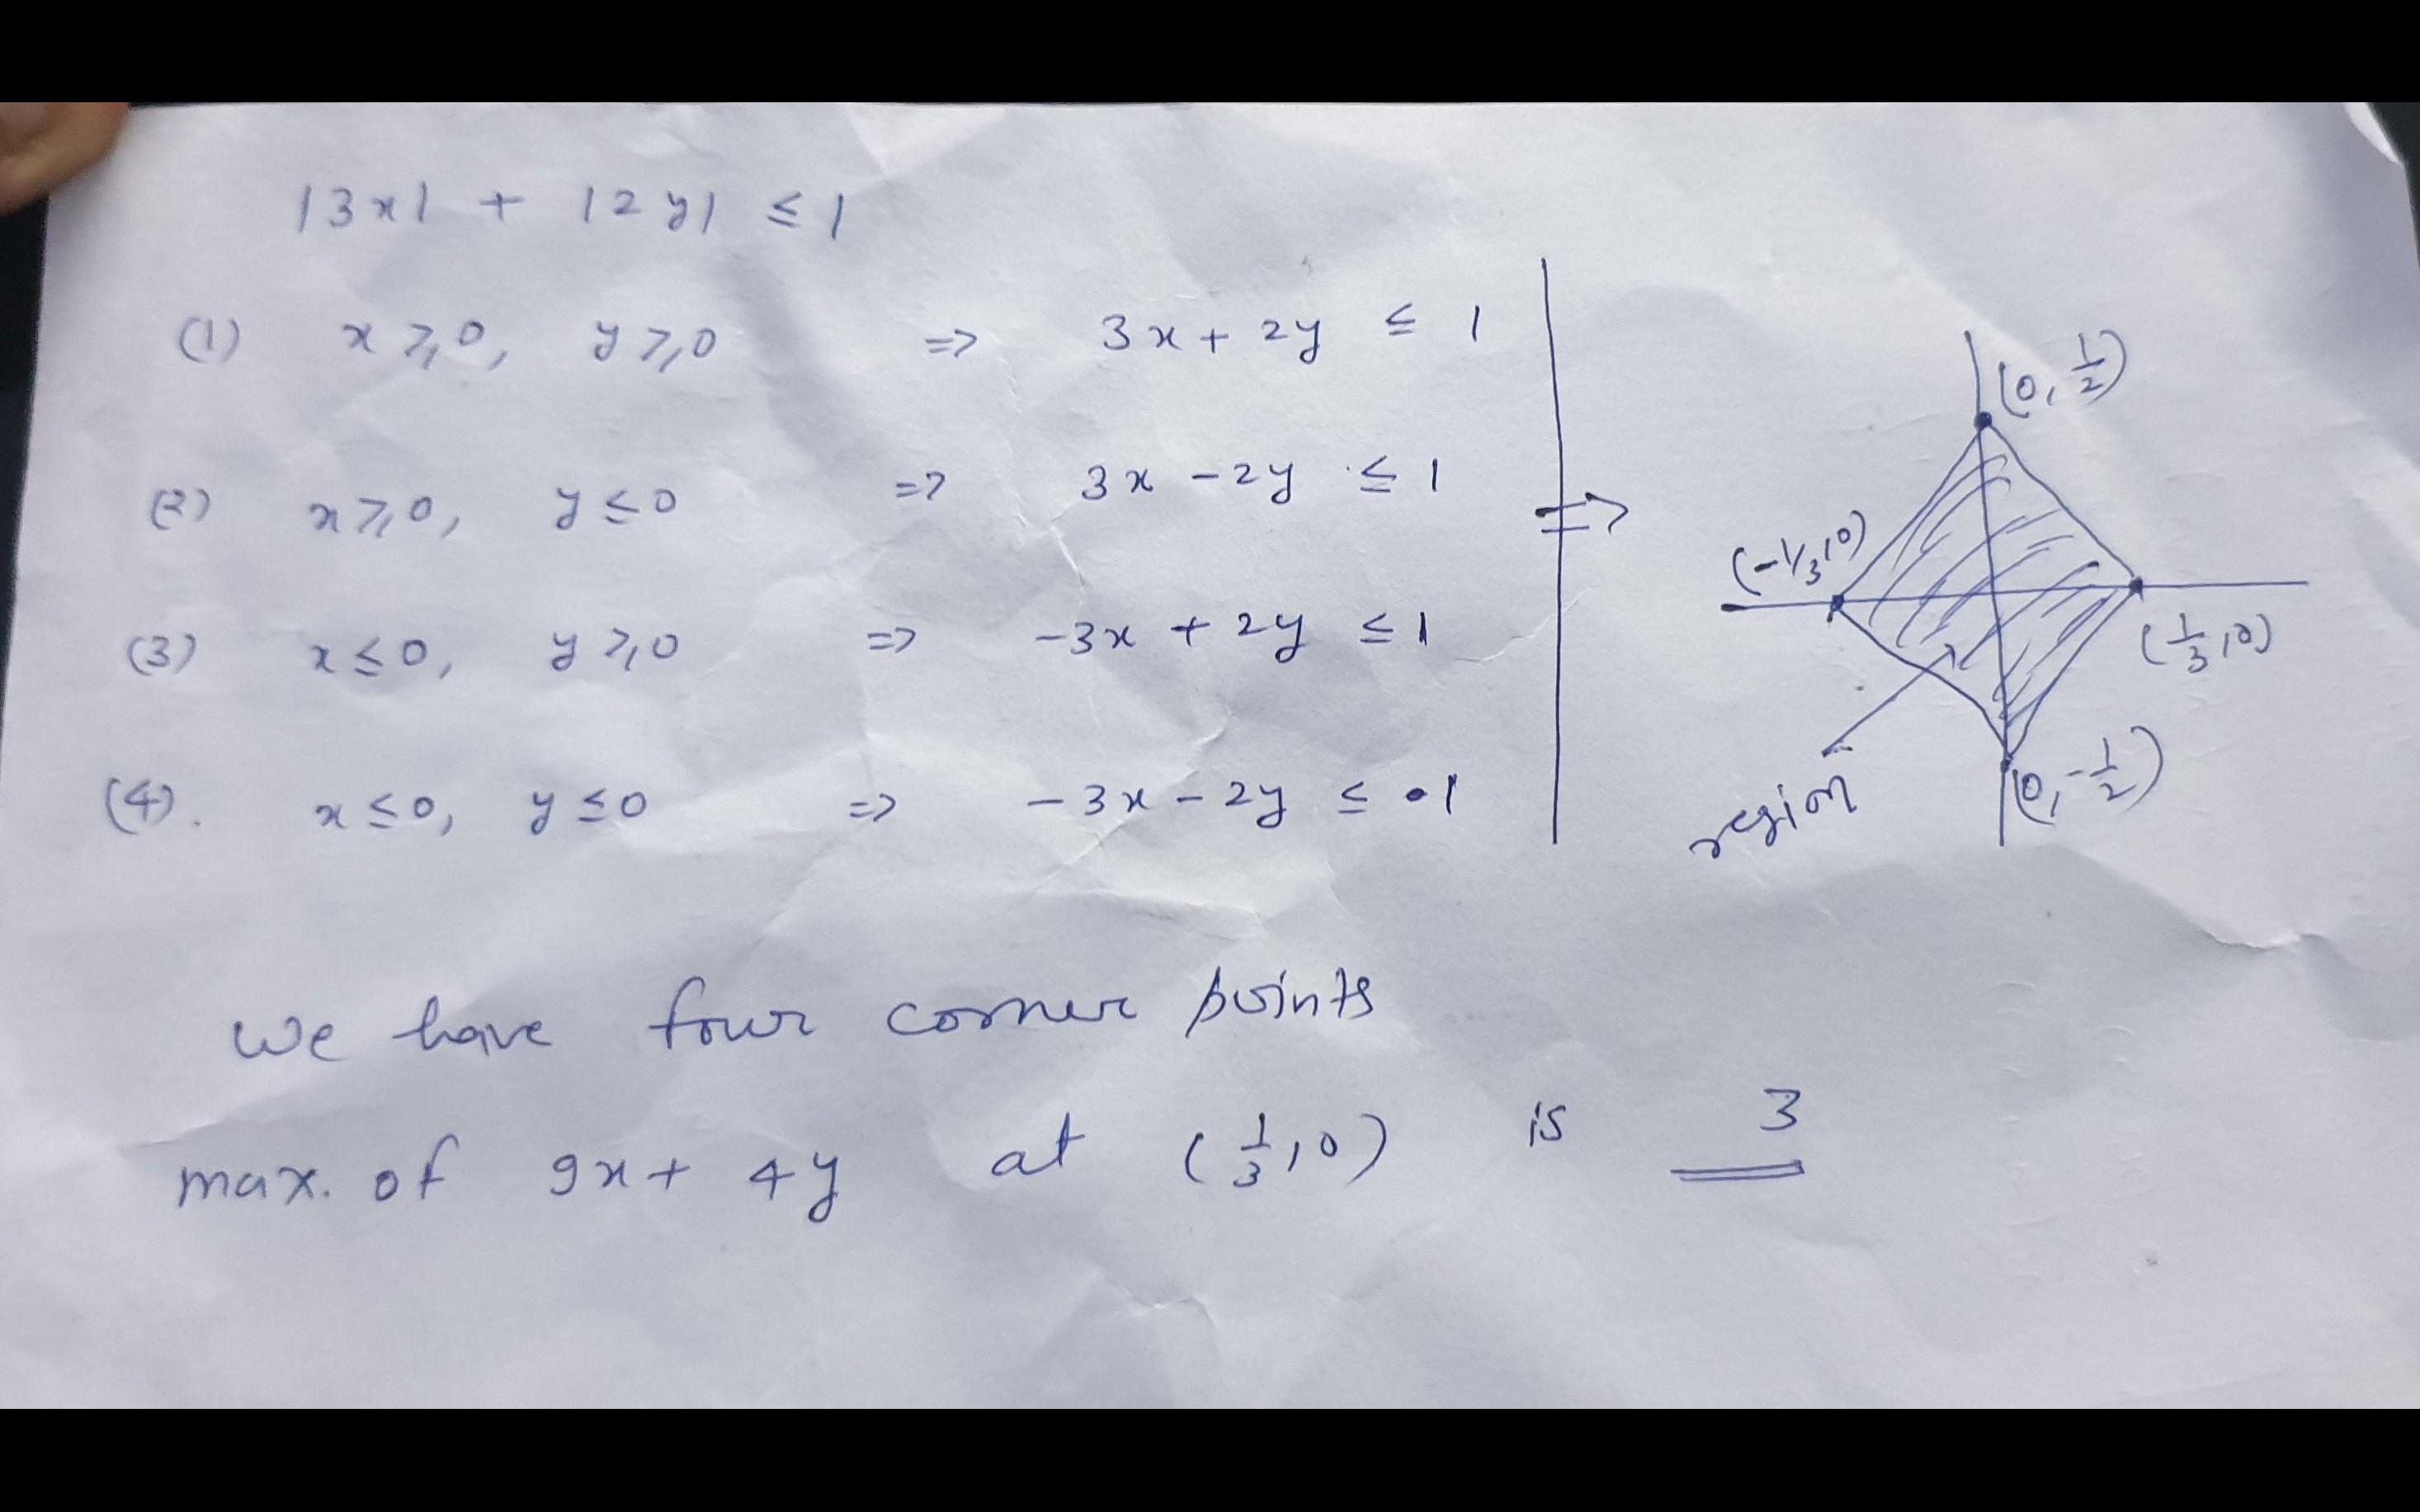 |3x| + |2y| ≤ 1
(1) x ≥ 0, y ≥ 0 => 3x + 2y ≤ 1
(2) x ≥ 0, y ≤ 0 => 3x - 2y ≤ 1
(3) x ≤ 0, y ≥ 0 => -3x + 2y ≤ 1
(4). x ≤ 0, y ≤ 0 => -3x - 2y ≤ 1
=>
(0, 1/2)
(-1/3, 0)
(1/3, 0)
(0, -1/2)
region
We have four corner points
max. of 9x + 4y at (1/3, 0) is 3